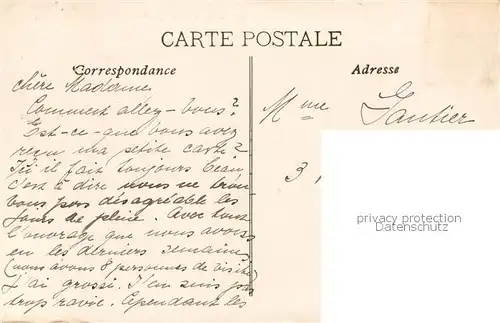 CARTE POSTALE
Correspondance
Adresse
chère Madame,
Comment allez-vous?
Est-ce-que vous avez
reçu ma petite carte?
Ici il fait toujours beau,
c'est à dire nous ne trou
vons pas désagréable les
jours de pluie. Avec tout
l'ouvrage que nous avons
eu les derniers semaines
(nous avons 8 personnes de visite)
j'ai grossi. J'en suis pas
trop ravie. Cependant les
Mme Gautier
3,
privacy protection
Datenschutz